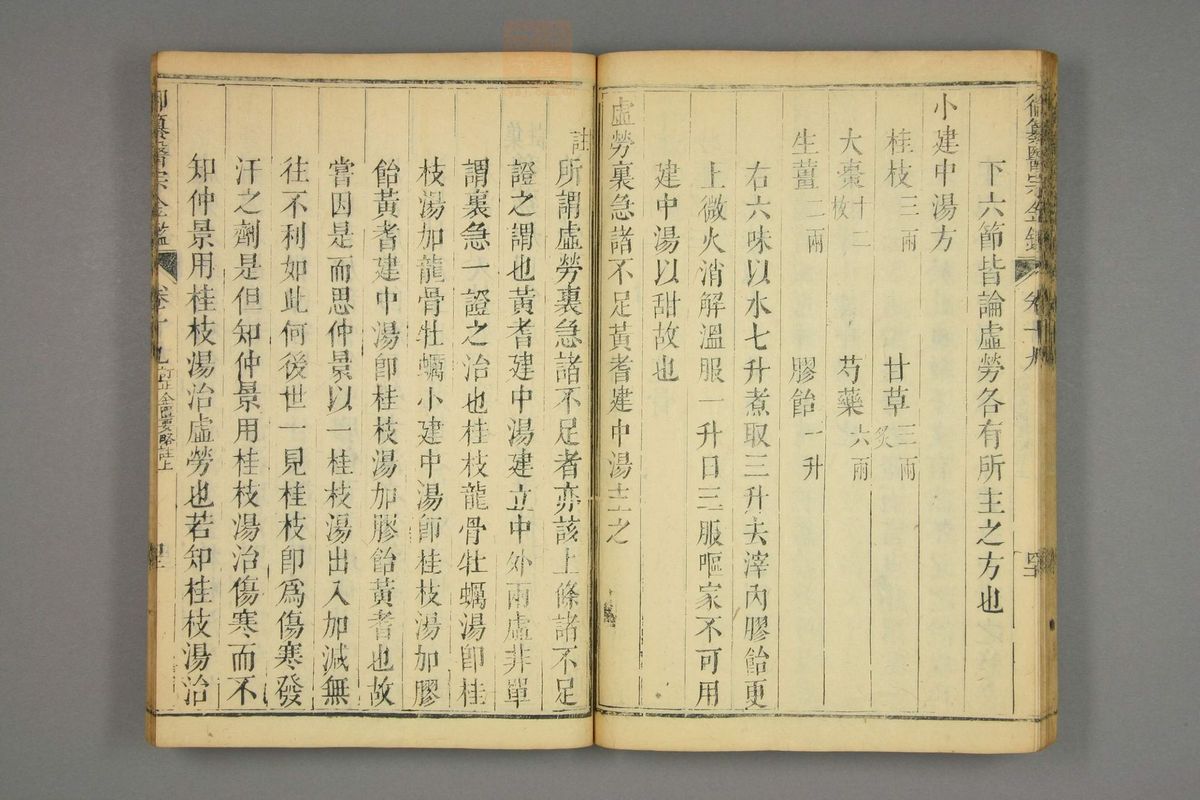 御纂醫宗金鑑 卷十九
下六節皆論虛勞各有所主之方也
小建中湯方
桂枝三兩 甘草三兩炙
大棗十二枚 芍藥六兩
生薑二兩 膠飴一升
右六味以水七升煮取三升去滓內膠飴更
上微火消解溫服一升日三服嘔家不可用
建中湯以甜故也
虛勞裏急諸不足黃耆建中湯主之
註所謂虛勞裏急諸不足者亦該上條諸不足
證之謂也黃耆建中湯建立中外兩虛非單
謂裏急一證之治也桂枝龍骨牡蠣湯卽桂
枝湯加龍骨牡蠣小建中湯卽桂枝湯加膠
飴黃耆建中湯卽桂枝湯加膠飴黃耆也故
嘗因是而思仲景以一桂枝湯出入加減無
往不利如此何後世一見桂枝卽爲傷寒發
汗之劑是但知仲景用桂枝湯治傷寒而不
知仲景用桂枝湯治虛勞也若知桂枝湯治
御纂醫宗金鑑 卷十九 金匱要略註上